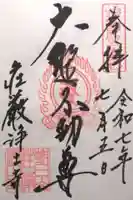 奉拝
令和七年
七月五日
大聖不動尊
荘厳浄土寺